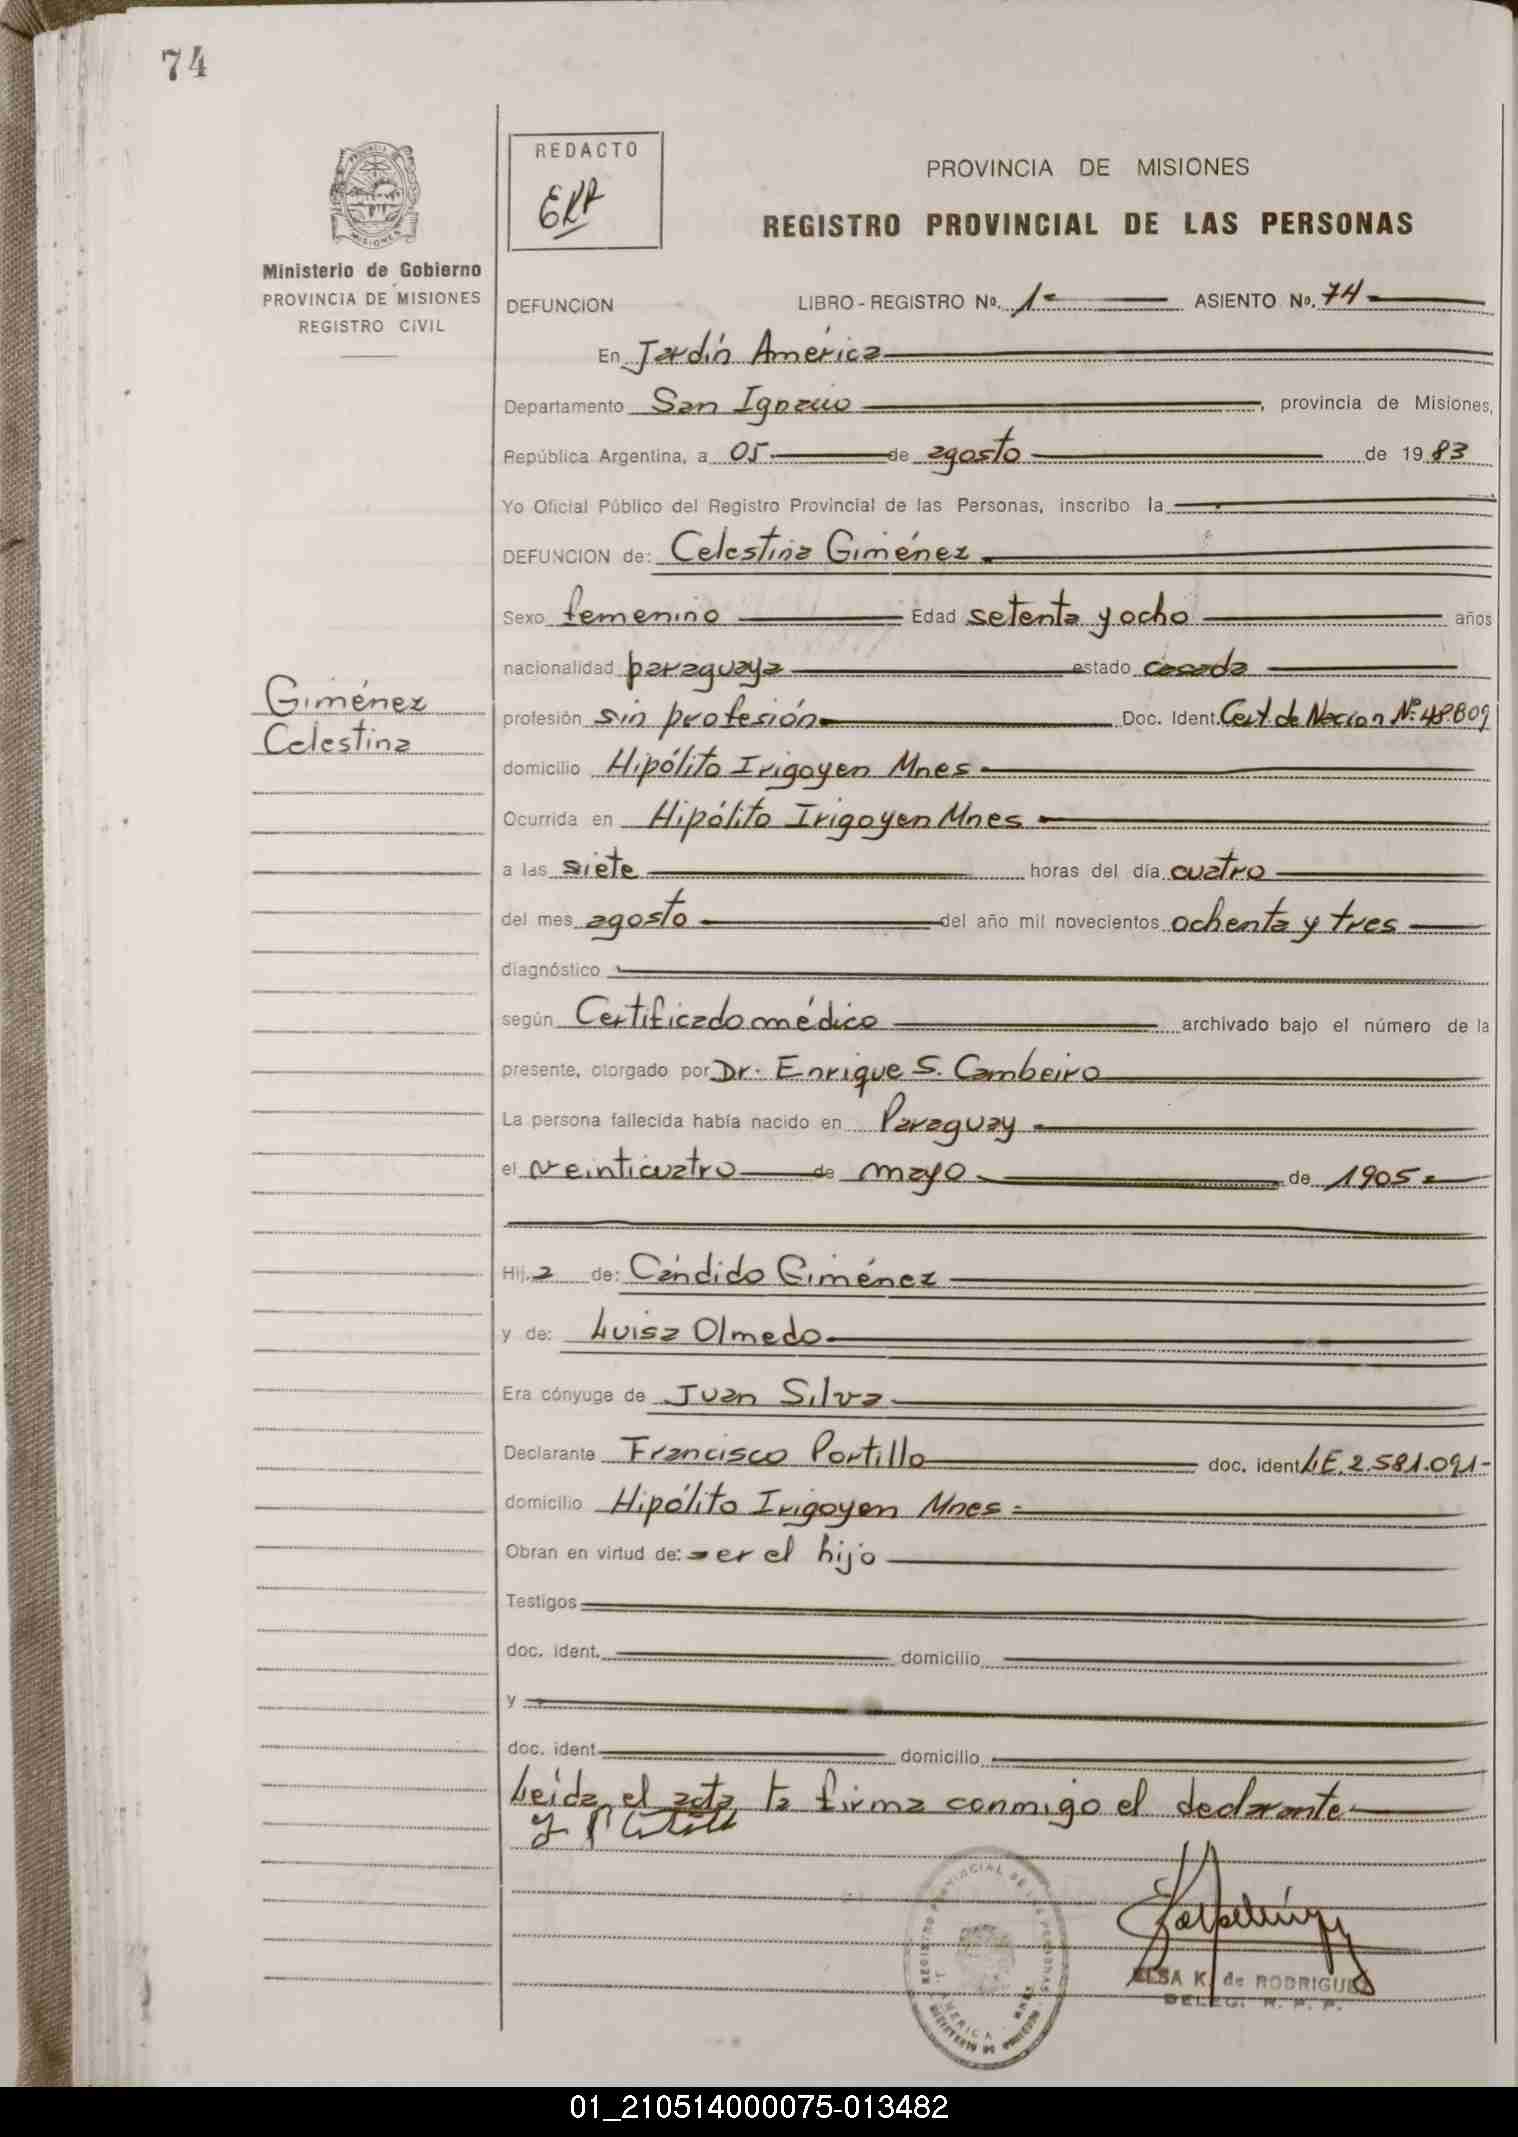 74
REDACTO
PROVINCIA DE MISIONES
REGISTRO PROVINCIAL DE LAS PERSONAS
Ministerio de Gobierno
PROVINCIA DE MISIONES
REGISTRO CIVIL
DEFUNCION LIBRO-REGISTRO No. 1 ASIENTO No. 74
En Jardín América
Departamento San Ignacio, provincia de Misiones,
República Argentina, a 05 de agosto de 1983
Yo Oficial Público del Registro Provincial de las Personas, inscribo la
DEFUNCION de: Celestina Giménez
Sexo femenino Edad setenta y ocho años
nacionalidad paraguaya estado casada
Giménez
Celestina
profesión sin profesión Doc. Ident. Cert de Nacion Nº 48.809
domicilio Hipólito Irigoyen Mnes
Ocurrida en Hipólito Irigoyen Mnes
a las siete horas del día cuatro
del mes agosto del año mil novecientos ochenta y tres
diagnóstico
según Certificado médico archivado bajo el número de la
presente, otorgado por Dr. Enrique S. Cambeiro
La persona fallecida había nacido en Paraguay
el veinticuatro de mayo de 1905
Hija de: Cándido Giménez
y de: Luisa Olmedo
Era cónyuge de Juan Silva
Declarante Francisco Portillo doc. ident L.E. 2.581.091-
domicilio Hipólito Irigoyen Mnes
Obran en virtud de: ser el hijo
Testigos
doc. ident. domicilio
y
doc. ident domicilio
Leida el acta la firma conmigo el declarante
REGISTRO PROVINCIAL DE LAS PERSONAS
ELSA K. de RODRIGUEZ
DELEG. R. P. P.
01_210514000075-013482